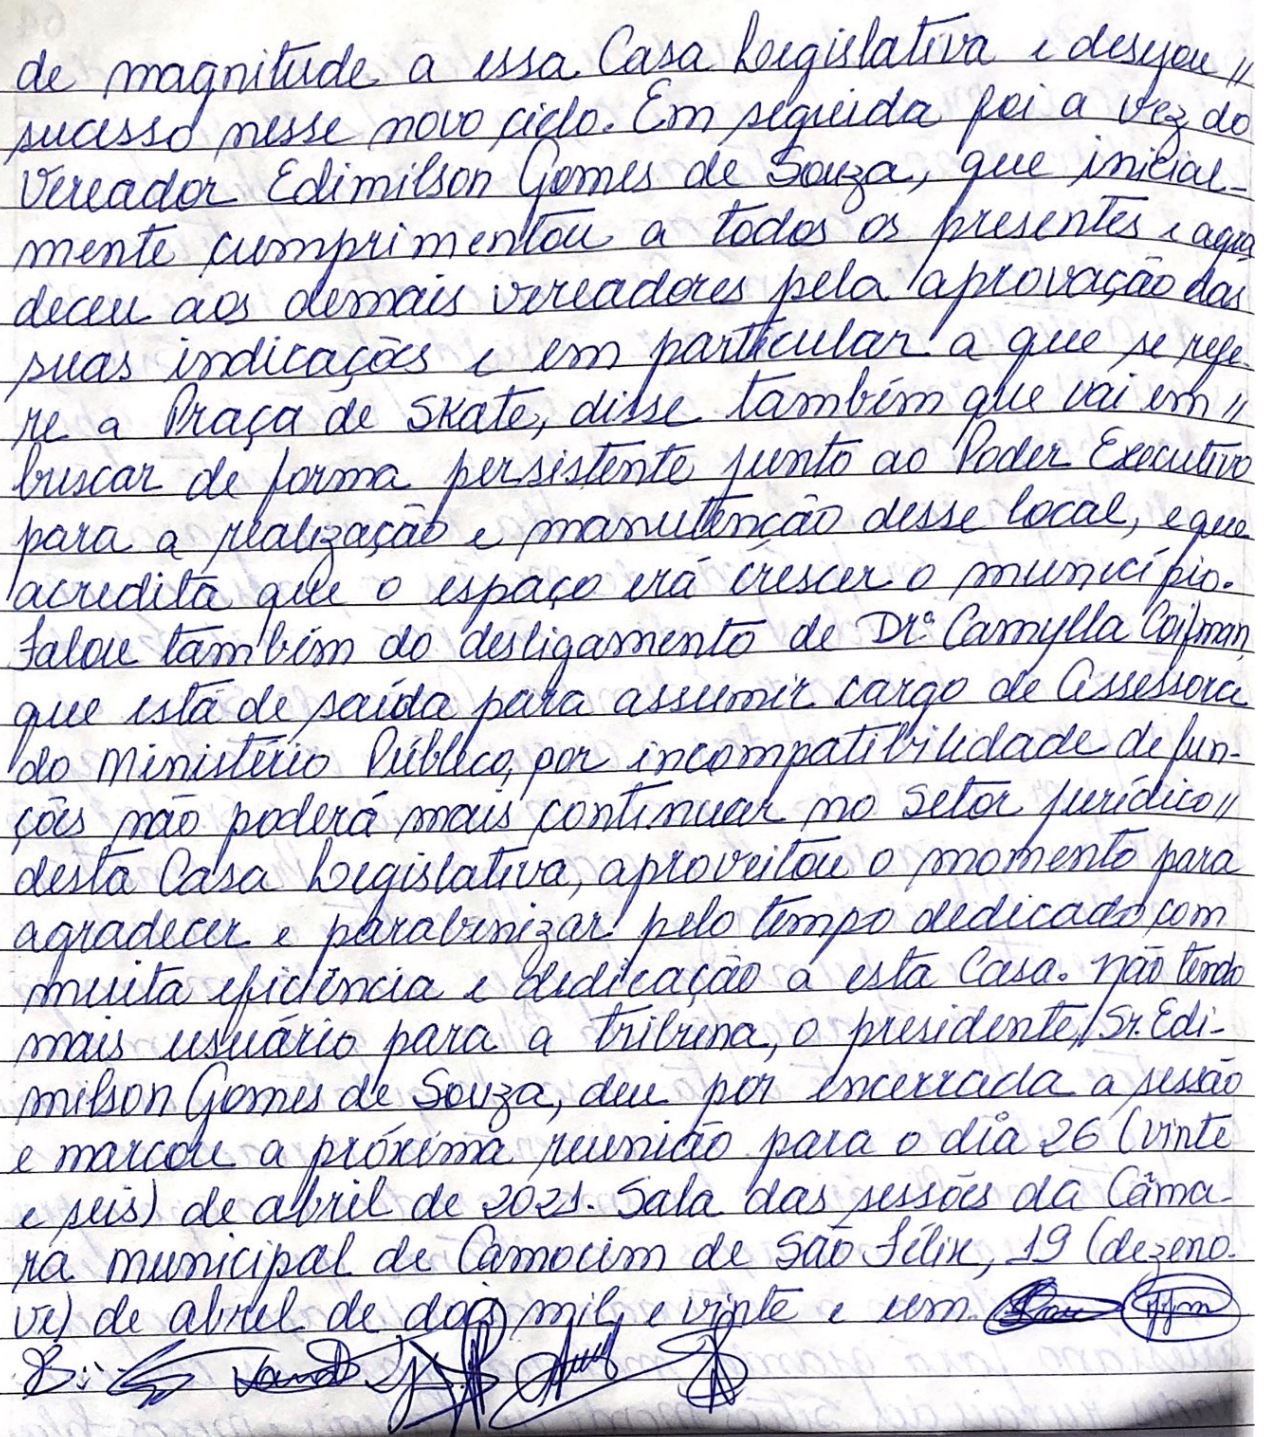 de magnitude a essa Casa Legislativa e desejou //
sucesso nesse novo ciclo. Em seguida foi a vez do
Vereador Edimilson Gomes de Souza, que inicial-
mente cumprimentou a todos os presentes e agra
deceu aos demais vereadores pela aprovação das
suas indicações e em particular a que se refe
re a Praça de Skate, disse também que vai em //
buscar de forma persistente junto ao Poder Executivo
para a realização e manutenção desse local, e que
acredita que o espaço irá crescer o município.
Falou também do desligamento de Drª Camylla Coifman,
que está de saída para assumir cargo de Assessora
do Ministério Público, por incompatibilidade de fun-
ções não poderá mais continuar no setor jurídico //
desta Casa Legislativa, aproveitou o momento para
agradecer e parabenizar pelo tempo dedicado com
muita eficiência e dedicação a esta Casa. Não tendo
mais usuário para a tribuna, o presidente, Sr. Edi-
milson Gomes de Souza, deu por encerrada a sessão
e marcou a próxima reunião para o dia 26 (vinte
e seis) de abril de 2021. Sala das sessões da Câma-
ra municipal de Camocim de São Félix, 19 (dezeno-
ve) de abril de dois mil e vinte e um.